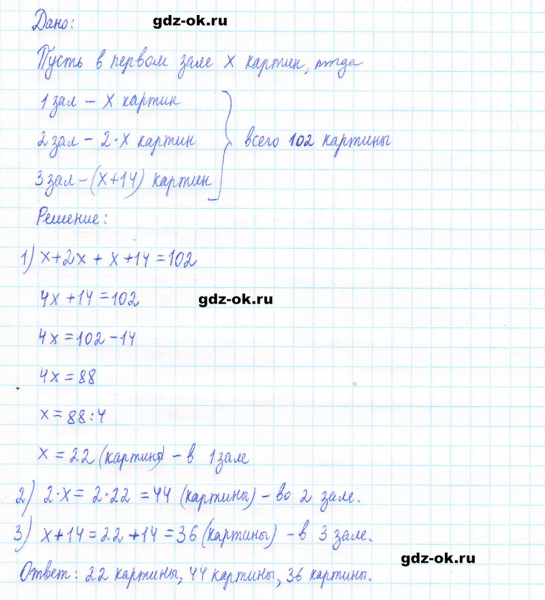 Дано:
gdz-ok.ru
Пусть в первом зале x картин, тогда
1 зал – x картин
2 зал – 2·x картин
всего 102 картины
3 зал – (x+14) картин
Решение:
1) x+2x+x+14=102
4x+14=102
gdz-ok.ru
4x=102-14
4x=88
x=88:4
x=22 (картины) – в 1 зале
2) 2·x=2·22=44 (картины) – во 2 зале.
3) x+14=22+14=36 (картины) – в 3 зале.
gdz-ok.ru
Ответ: 22 картины, 44 картины, 36 картины.